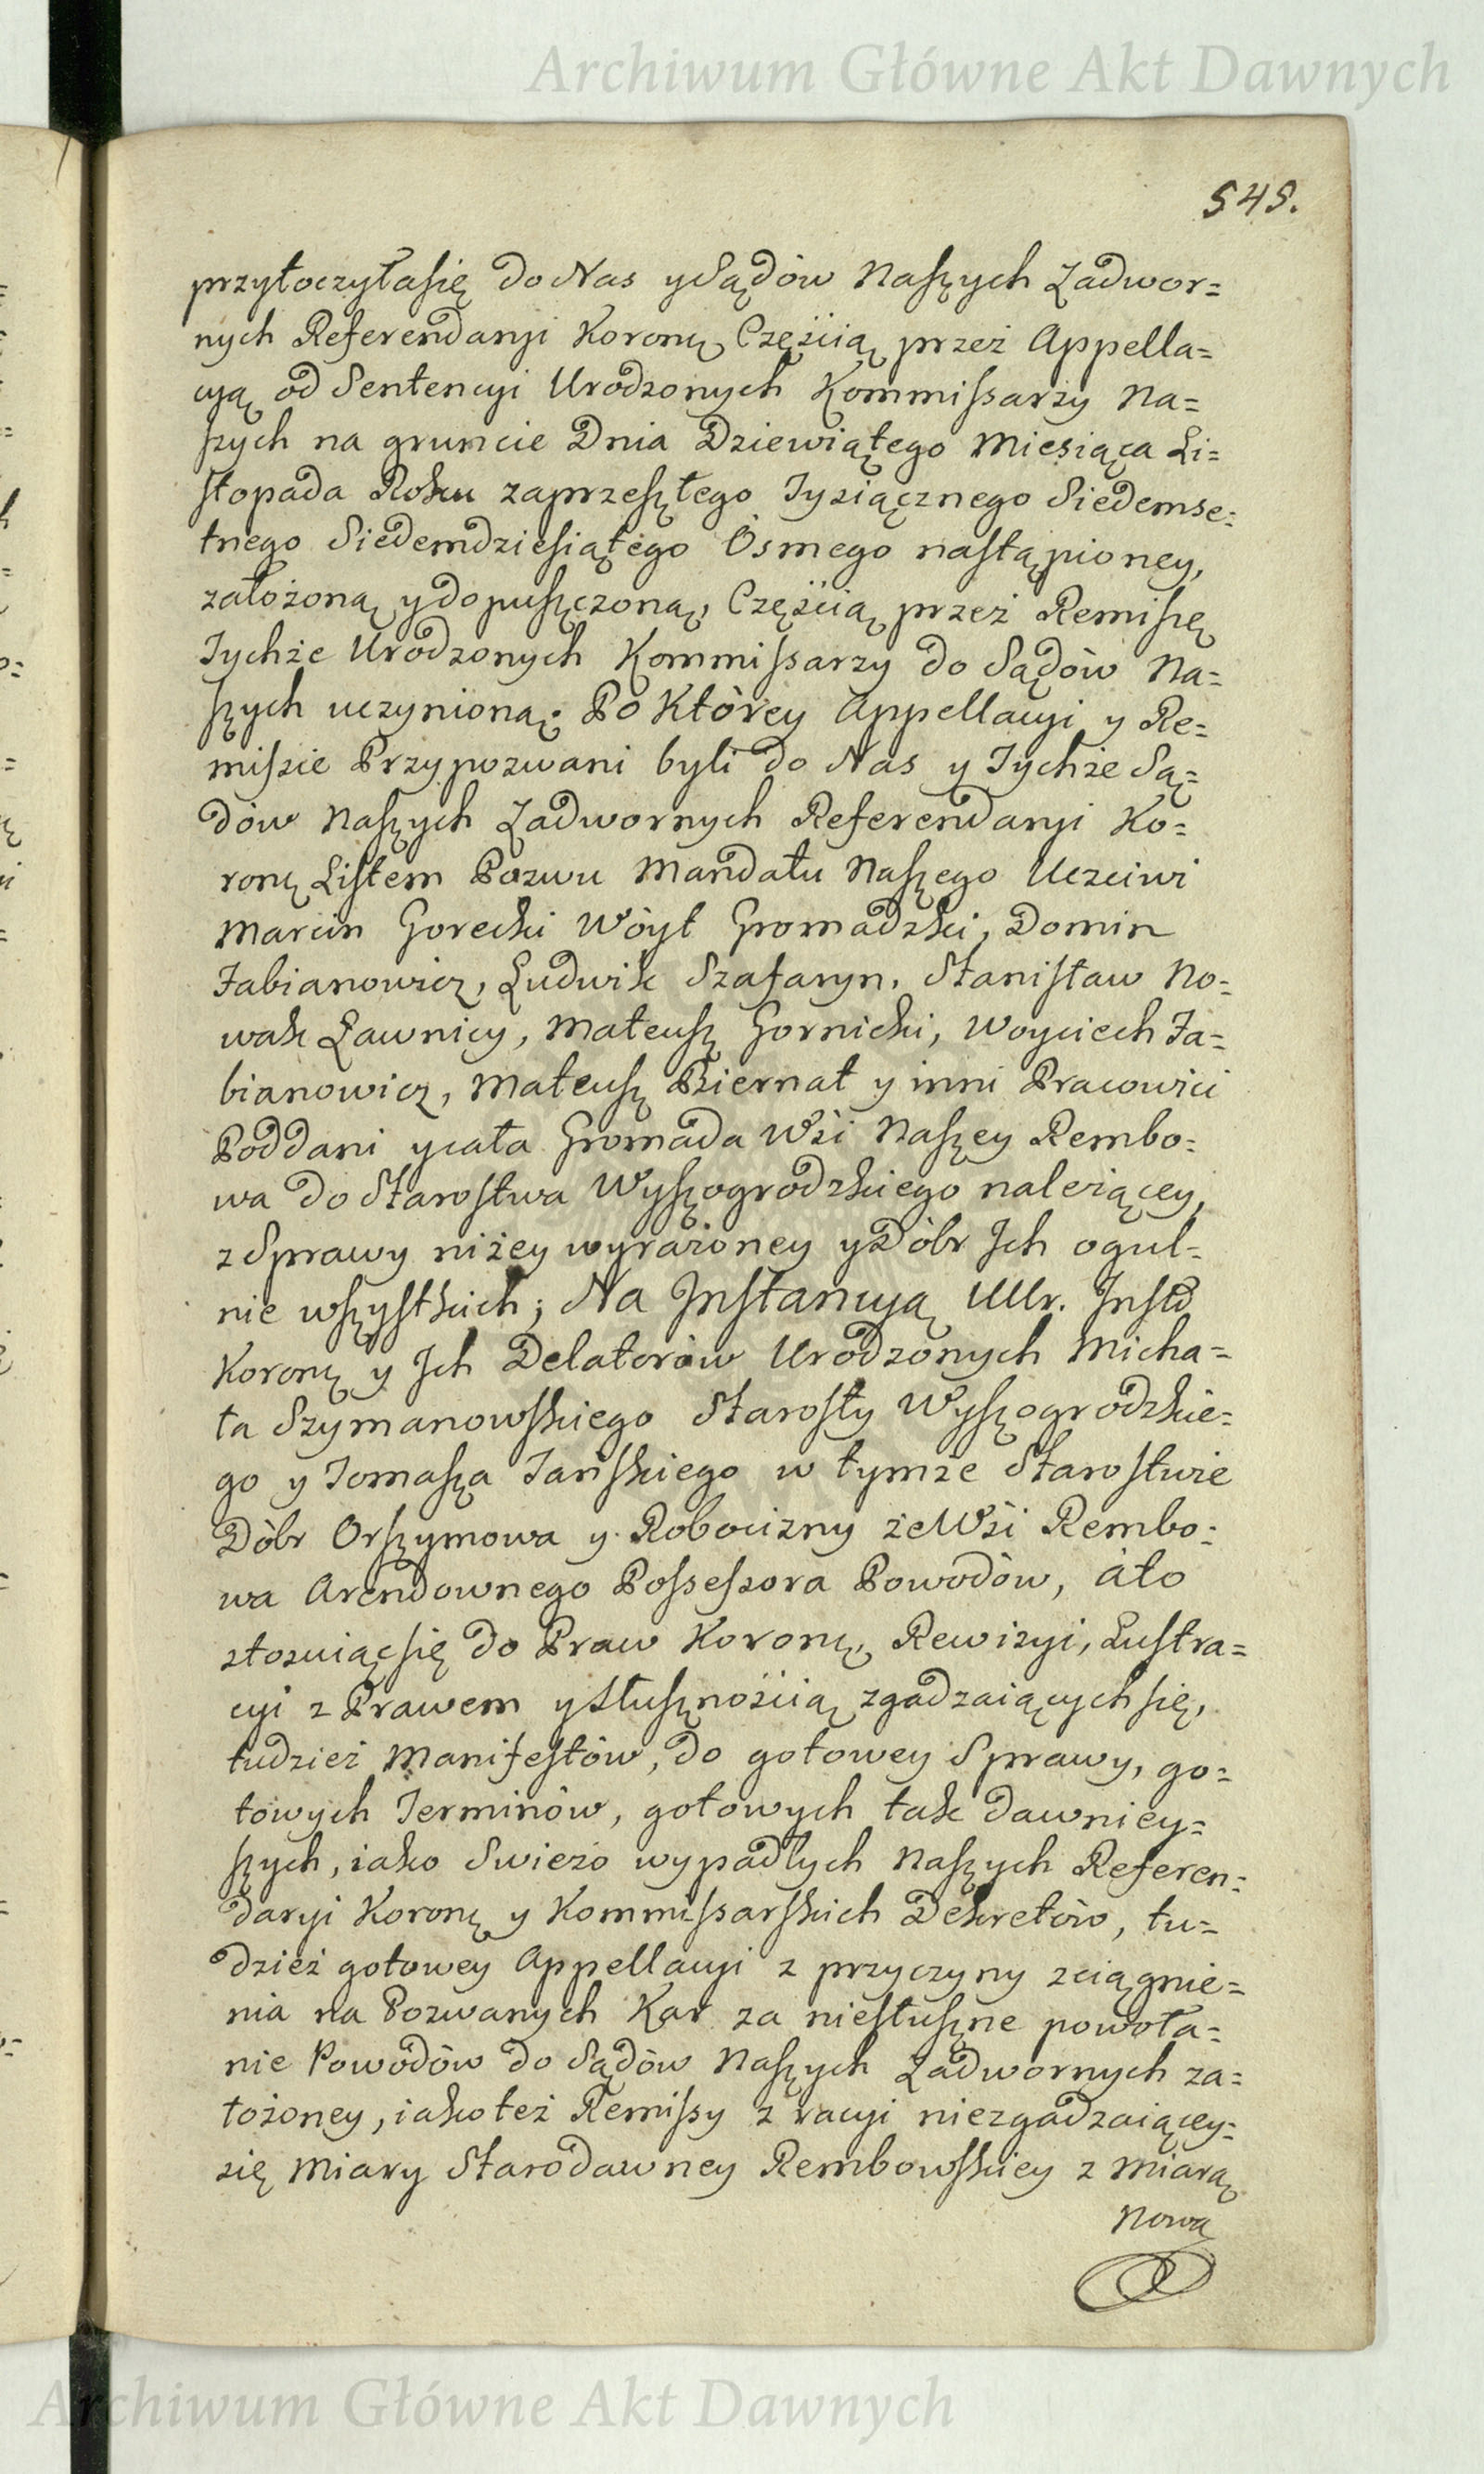 Archiwum Główne Akt Dawnych
545.
przytoczyłasię do Nas y Sądów Naszych Zadwor=
nych Referendaryi Koronn: Częścią przez Appella=
cyą od Sentencyi Urodzonych Kommissarzy Na=
szych na gruncie Dnia Dziewiątego Miesiąca Li=
stopada Roku zaprzeszłego Tysiącznego Siedemse=
tnego Siedemdziesiątego Ósmego nastąpioney,
założoną y dopuszczoną, Częścią przez Remissę
Tychże Urodzonych Kommissarzy do Sądów Na=
szych uczynioną: Po Którey Appellacyi y Re=
missie Przypozwani byli do Nas y Tychże Są=
dów Naszych Zadwornych Referendaryi Ko=
ronn: Listem Pozwu Mandatu Naszego Uczciwi
Marcin Gorecki Wóyt Gromadzki, Domin
Fabianowicz, Ludwik Szafaryn, Stanisław No=
wak Ławnicy, Mateusz Gornicki, Woyciech Fa=
bianowicz, Mateusz Biernat y inni Pracowici
Poddani y cała Gromada Wsi Naszey Rembo=
wa do Starostwa Wyszogrodzkiego należącey,
z Sprawy niżey wyrażoney y Dóbr Ich ogul=
nie wszystkich; Na Instancyą Ulr. Inst:
Koronn: y Ich Delatorów Urodzonych Micha=
ła Szymanowskiego Starosty Wyszogrodzkie=
go y Tomasza Jańskiego w tymże Starostwie
Dóbr Orszymowa y Robocizny ze Wsi Rembo=
wa Arendownego Possessora Powodów, áto
stosuiącsię do Praw Koronn:, Rewizyi, Lustra=
cyi z Prawem y Słusznością zgadzaiących się,
tudzież Manifestów, do gotowey Sprawy, go=
towych Terminów, gotowych tak dawniey=
szych, iako Swieżo wypadłych Naszych Referen=
daryi Koronn: y Kommissarskich Dekretów, tu=
dzież gotowey Appellacyi z przyczyny zciągnie=
nia na Pozwanych Kar za niesłuszne powoła=
nie Powodów do Sądów Naszych Zadwornych za=
łożoney, iakoteż Remissy z racyi niezgadzaiącey=
się Miary Starodawney Rembowskiey z Miarą
Nową
Archiwum Główne Akt Dawnych